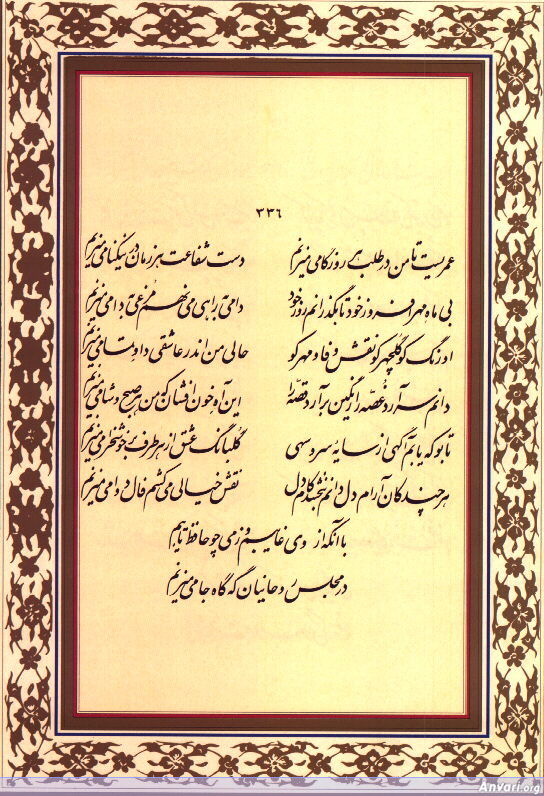 ٣٣٦
عمریست تا من در طلب هر روز گامی میزنم دست شفاعت هر زمان در نیکنامی میزنم
بی ماه مهر افروز خود تا بگذرانم روز خود دامی براهی می نهم مرغی بدامی میزنم
اورنگ کو گلچهر کو نقش وفا و مهر کو حالی من اندر عاشقی داو تمامی میزنم
دانم سر آرد غصه را رنگین برآرد قصه را این آه خون افشان که من هر صبح و شامی میزنم
تا بو که یابم آگهی از سایهٔ سرو سهی گلبانگ عشق از هر طرف بر خوشخرامی میزنم
هر چند کان آرام دل دانم نبخشد کام دل نقش خیالی می کشم فال دوامی میزنم
با آنکه از وی غایبم وز می چو حافظ تایبم
در مجلس روحانیان گه گاه جامی میزنم
Anvari.org